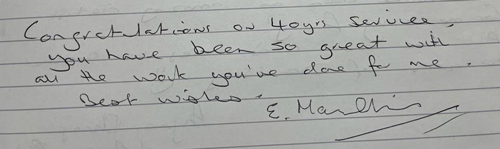 Congratulations on 40yrs service.
you have been so great with
all the work you've done for me.
Best wishes.
E.